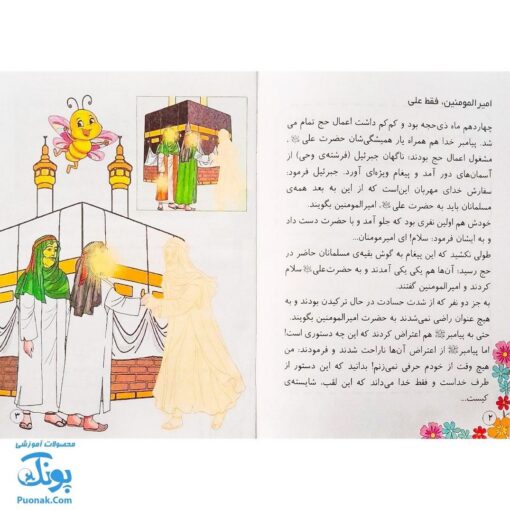 امیرالمومنین، فقط علی
چهاردهم ماه ذی‌حجه بود و کم‌کم داشت اعمال حج تمام می
شد. پیامبر خدا هم همراه یار همیشگی‌شان حضرت علی ﷺ.
مشغول اعمال حج بودند؛ ناگهان جبرئیل (فرشته‌ی وحی) از
آسمان‌های دور آمد و پیغام ویژه‌ای آورد. جبرئیل فرمود:
سفارش خدای مهربان این‌است که از این به بعد همه‌ی
مسلمانان باید به حضرت‌علی ﷺ. امیرالمومنین بگویند.
خودش هم اولین نفری بود که جلو آمد و با حضرت دست داد
و به ایشان فرمود: سلام! ای امیرمومنان...
طولی نکشید که این پیغام به گوش بقیه‌ی مسلمانان حاضر در
حج رسید؛ آن‌ها هم یکی یکی آمدند و به حضرت‌علی ﷺ سلام
کردند و امیرالمومنین گفتند.
به جز دو نفر که از شدت حسادت در حال ترکیدن بودند و به
هیچ عنوان راضی نمی‌شدند به حضرت امیرالمومنین بگویند.
حتی به پیامبر ﷺ هم اعتراض کردند که این چه دستوری است!
اما پیامبر ﷺ از اعتراض آن‌ها ناراحت شدند و فرمودند: من
هیچ وقت از خودم حرفی نمی‌زنم! بدانید که این دستور از
طرف خداست و فقط خدا می‌داند که این لقب، شایسته‌ی
کیست...
۲
۳
محصولات آموزشی
پونک
Puonak.Com